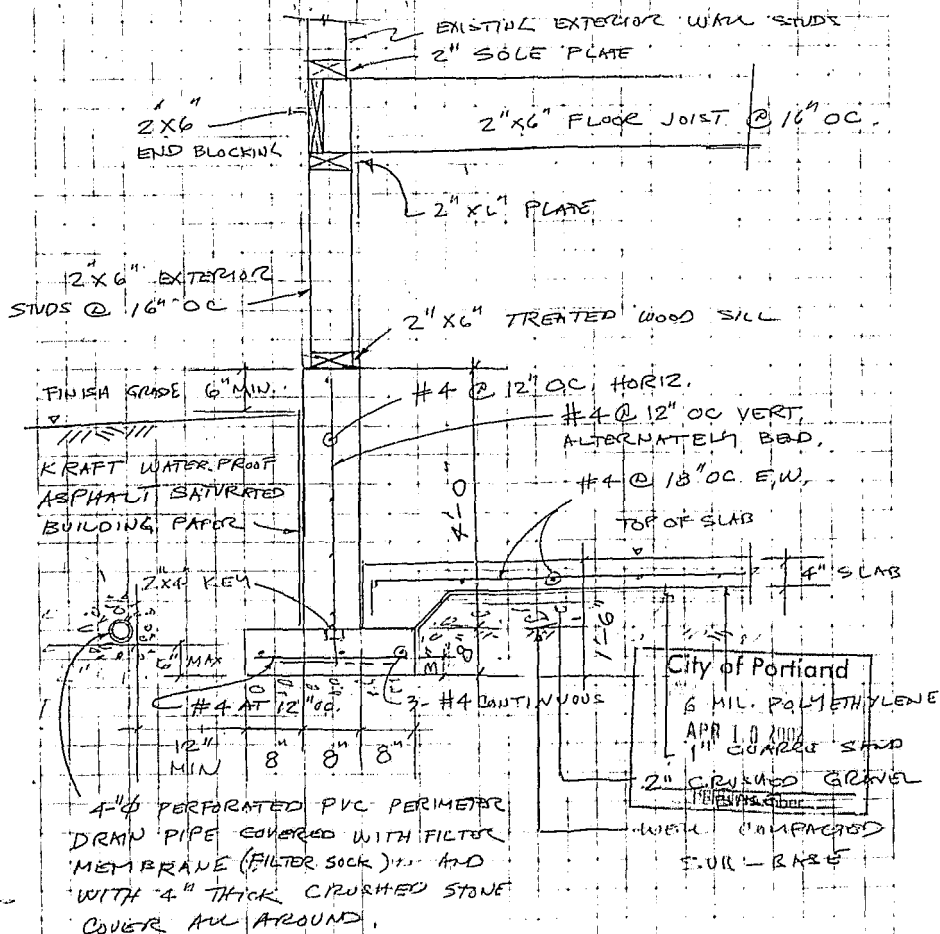 EXISTING EXTERIOR WALL STUDS
2" SOLE PLATE
2"X6"
END BLOCKING
2"X6" FLOOR JOIST @ 16" OC.
2" X6" PLATE
2"X6" EXTERIOR
STUDS @ 16" OC
2" X6" TREATED WOOD SILL
FINISH GRADE 6" MIN.
#4 @ 12" OC. HORIZ.
#4 @ 12" OC VERT.
ALTERNATELY BEND.
KRAFT WATERPROOF
ASPHALT SATURATED
BUILDING PAPER
4'-0"
#4 @ 18" OC E.W.
TOP OF SLAB
4" SLAB
2"X4" KEY
6" MAX
3"
8"
1'-6"
#4 AT 12" OC.
3-#4 CONTINUOUS
12"
MIN
8" 8" 8"
City of Portland
6 MIL. POLYETHYLENE
APR 10 2002
1" COARSE SAND
2" CRUSHED GRAVEL
WELL COMPACTED
SUB-BASE
4"Φ PERFORATED PVC PERIMETER
DRAIN PIPE COVERED WITH FILTER
MEMBRANE (FILTER SOCK) AND
WITH 4" THICK CRUSHED STONE
COVER ALL AROUND.